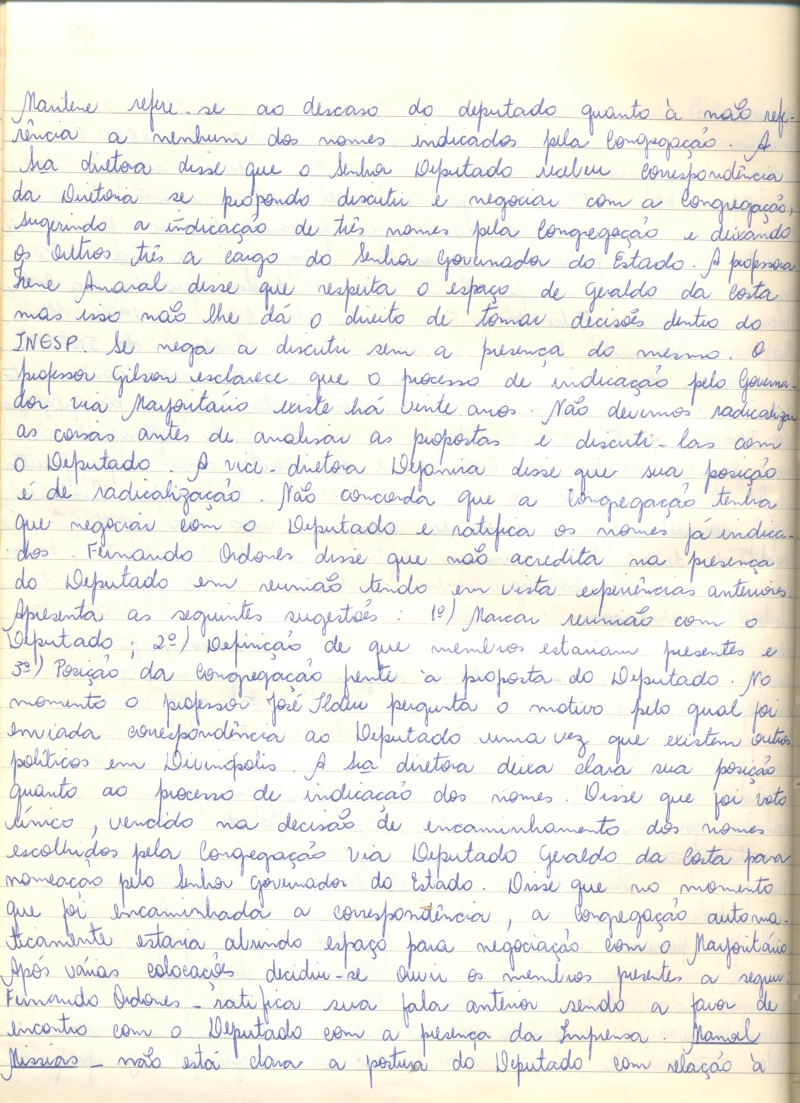 Marilene refere-se ao descaso do deputado quanto à não refe-
rência a nenhum dos nomes indicados pela Congregação. A
Sra diretora disse que o Senhor Deputado recebeu correspondência
da Diretoria se propondo discutir e negociar com a Congregação,
sugerindo a indicação de três nomes pela Congregação e deixando
os outros três a cargo do Senhor Governador do Estado. A professora
Irene Amaral disse que respeita o espaço de Geraldo da Costa
mas isso não lhe dá o direito de tomar decisões dentro do
INESP. Se nega a discutir sem a presença do mesmo. O
professor Gilson esclarece que o processo de indicação pelo Governa-
dor via Majoritário existe há vinte anos. Não devemos radicalizar
as coisas antes de analisar as propostas e discuti-las com
o Deputado. A vice-diretora Dejanira disse que sua posição
é de radicalização. Não concorda que a Congregação tenha
que negociar com o Deputado e ratifica os nomes já indica-
dos. Fernando Ordones disse que não acredita na presença
do Deputado em reunião tendo em vista experiências anteriores.
Apresenta as seguintes sugestões: 1º) Marcar reunião com o
Deputado; 2º) Definição de que membros estariam presentes e
3º) Posição da Congregação pente à proposta do Deputado. No
momento o professor José Ildeu pergunta o motivo pelo qual foi
enviada correspondência ao Deputado uma vez que existem outros
políticos em Divinópolis. A Sra diretora deixa clara sua posição
quanto ao processo de indicação dos nomes. Disse que foi voto
único, vencido na decisão de encaminhamento dos nomes
escolhidos pela Congregação via Deputado Geraldo da Costa para
nomeação pelo Senhor Governador do Estado. Disse que no momento
que foi encaminhada a correspondência, a Congregação automa-
ticamente estaria abrindo espaço para negociação com o Majoritário.
Após várias colocações decidiu-se ouvir os membros presentes a seguir:
Fernando Ordones - ratifica sua fala anterior sendo a favor de
encontro com o Deputado com a presença da Imprensa. Manoel
Missias - não está clara a postura do Deputado com relação à